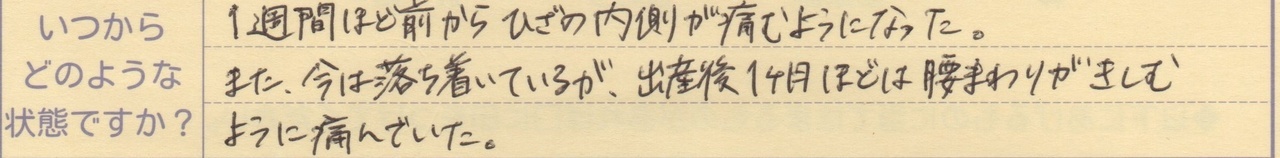 いつから
どのような
状態ですか？
1週間ほど前からひざの内側が痛むようになった。
また、今は落ち着いているが、出産後1ヶ月ほどは腰まわりがきしむ
ように痛んでいた。